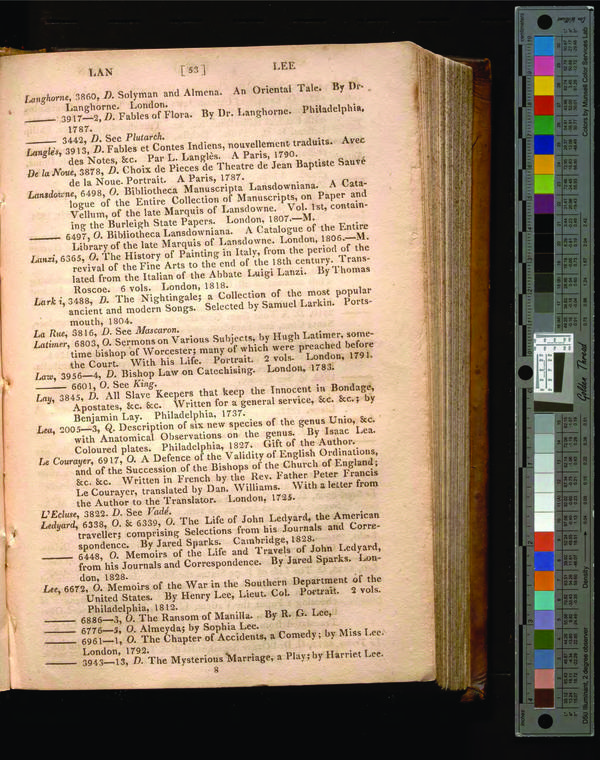 LAN [ 53 ] LEE
Langhorne, 3860, D. Solyman and Almena. An Oriental Tale. By Dr.
Langhorne. London.
—— 3917—2, D. Fables of Flora. By Dr. Langhorne. Philadelphia,
1787.
—— 3442, D. See Plutarch.
Langlès, 3913, D. Fables et Contes Indiens, nouvellement traduits. Avec
des Notes, &c. Par L. Langlès. A Paris, 1790.
De la Noue, 3878, D. Choix de Pieces de Theatre de Jean Baptiste Sauvé
de la Noue. Portrait. A Paris, 1787.
Lansdowne, 6498, O. Bibliotheca Manuscripta Lansdowniana. A Cata-
logue of the Entire Collection of Manuscripts, on Paper and
Vellum, of the late Marquis of Lansdowne. Vol. 1st, contain-
ing the Burleigh State Papers. London, 1807.—M.
—— 6497, O. Bibliotheca Lansdowniana. A Catalogue of the Entire
Library of the late Marquis of Lansdowne. London, 1806.—M.
Lanzi, 6365, O. The History of Painting in Italy, from the period of the
revival of the Fine Arts to the end of the 18th century. Trans-
lated from the Italian of the Abbate Luigi Lanzi. By Thomas
Roscoe. 6 vols. London, 1818.
Lark i, 3488, D. The Nightingale; a Collection of the most popular
ancient and modern Songs. Selected by Samuel Larkin. Ports-
mouth, 1804.
La Rue, 3816, D. See Mascaron.
Latimer, 6803, O. Sermons on Various Subjects, by Hugh Latimer, some-
time bishop of Worcester; many of which were preached before
the Court. With his Life. Portrait. 2 vols. London, 1791.
Law, 3956—4, D. Bishop Law on Catechising. London, 1783.
—— 6601, O. See King.
Lay, 3845, D. All Slave Keepers that keep the Innocent in Bondage,
Apostates, &c. &c. Written for a general service, &c. &c.; by
Benjamin Lay. Philadelphia, 1737.
Lea, 2005—3, Q. Description of six new species of the genus Unio, &c.
with Anatomical Observations on the genus. By Isaac Lea.
Coloured plates. Philadelphia, 1827. Gift of the Author.
Le Courayer, 6917, O. A Defence of the Validity of English Ordinations,
and of the Succession of the Bishops of the Church of England;
&c. &c. Written in French by the Rev. Father Peter Francis
Le Courayer, translated by Dan. Williams. With a letter from
the Author to the Translator. London, 1725.
L'Ecluse, 3822. D. See Vadé.
Ledyard, 6338, O. & 6339, O. The Life of John Ledyard, the American
traveller; comprising Selections from his Journals and Corre-
spondence. By Jared Sparks. Cambridge, 1828.
—— 6448, O. Memoirs of the Life and Travels of John Ledyard,
from his Journals and Correspondence. By Jared Sparks. Lon-
don, 1828.
Lee, 6672, O. Memoirs of the War in the Southern Department of the
United States. By Henry Lee, Lieut. Col. Portrait. 2 vols.
Philadelphia, 1812.
—— 6886—3, O. The Ransom of Manilla. By R. G. Lee,
—— 6776—5, O. Almeyda; by Sophia Lee.
—— 6961—1, O. The Chapter of Accidents, a Comedy; by Miss Lee.
London, 1792.
—— 3943—13, D. The Mysterious Marriage, a Play; by Harriet Lee.
8
Colors by Munsell Color Services Lab
Golden Thread
Density
D50 Illuminant, 2 degree observer